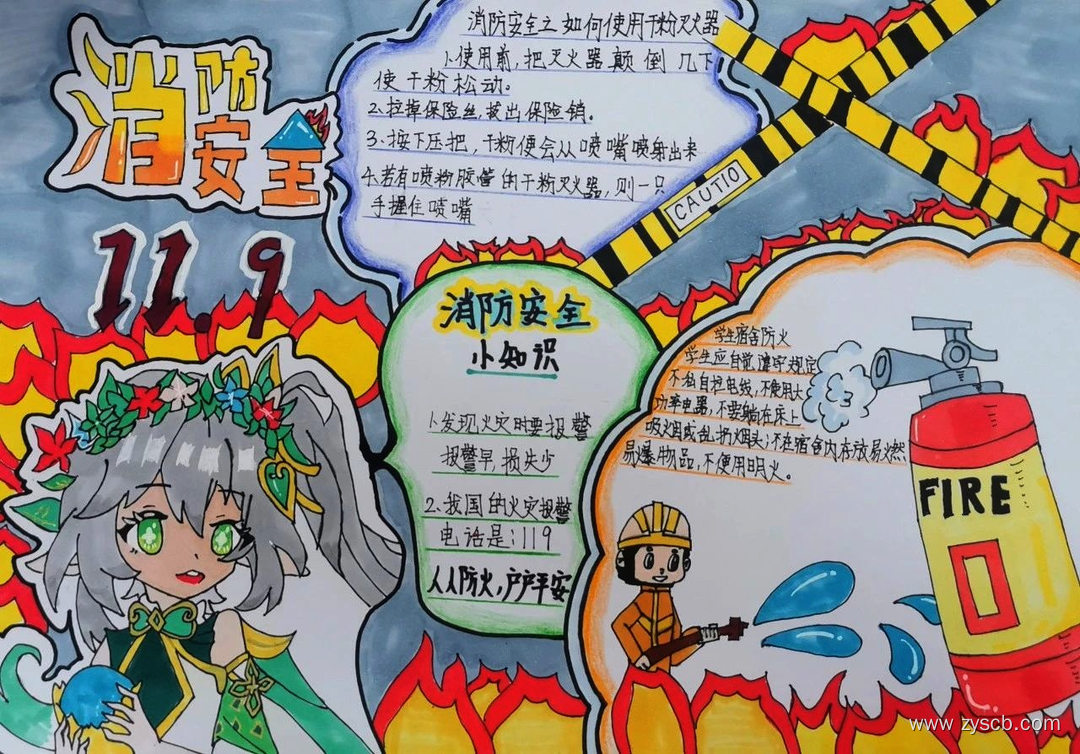 消防安全
11.9
消防安全之如何使用干粉灭火器
1.使用前,把灭火器颠倒几下
使干粉松动。
2.拉掉保险丝,拔出保险销。
3.按下压把,干粉便会从喷嘴喷射出来
4.若有喷粉胶管的干粉灭火器,则一只
手握住喷嘴
CAUTIO
消防安全
小知识
1.发现火灾时要报警
报警早,损失少
2.我国的火灾报警
电话是:119
人人防火,户户平安
学生宿舍防火
学生应自觉遵守规定
不私自拉电线,不使用大
功率电器,不要躺在床上
吸烟或乱扔烟头;不在宿舍内存放易燃
易爆物品,不使用明火。
FIRE
www.zyscb.com